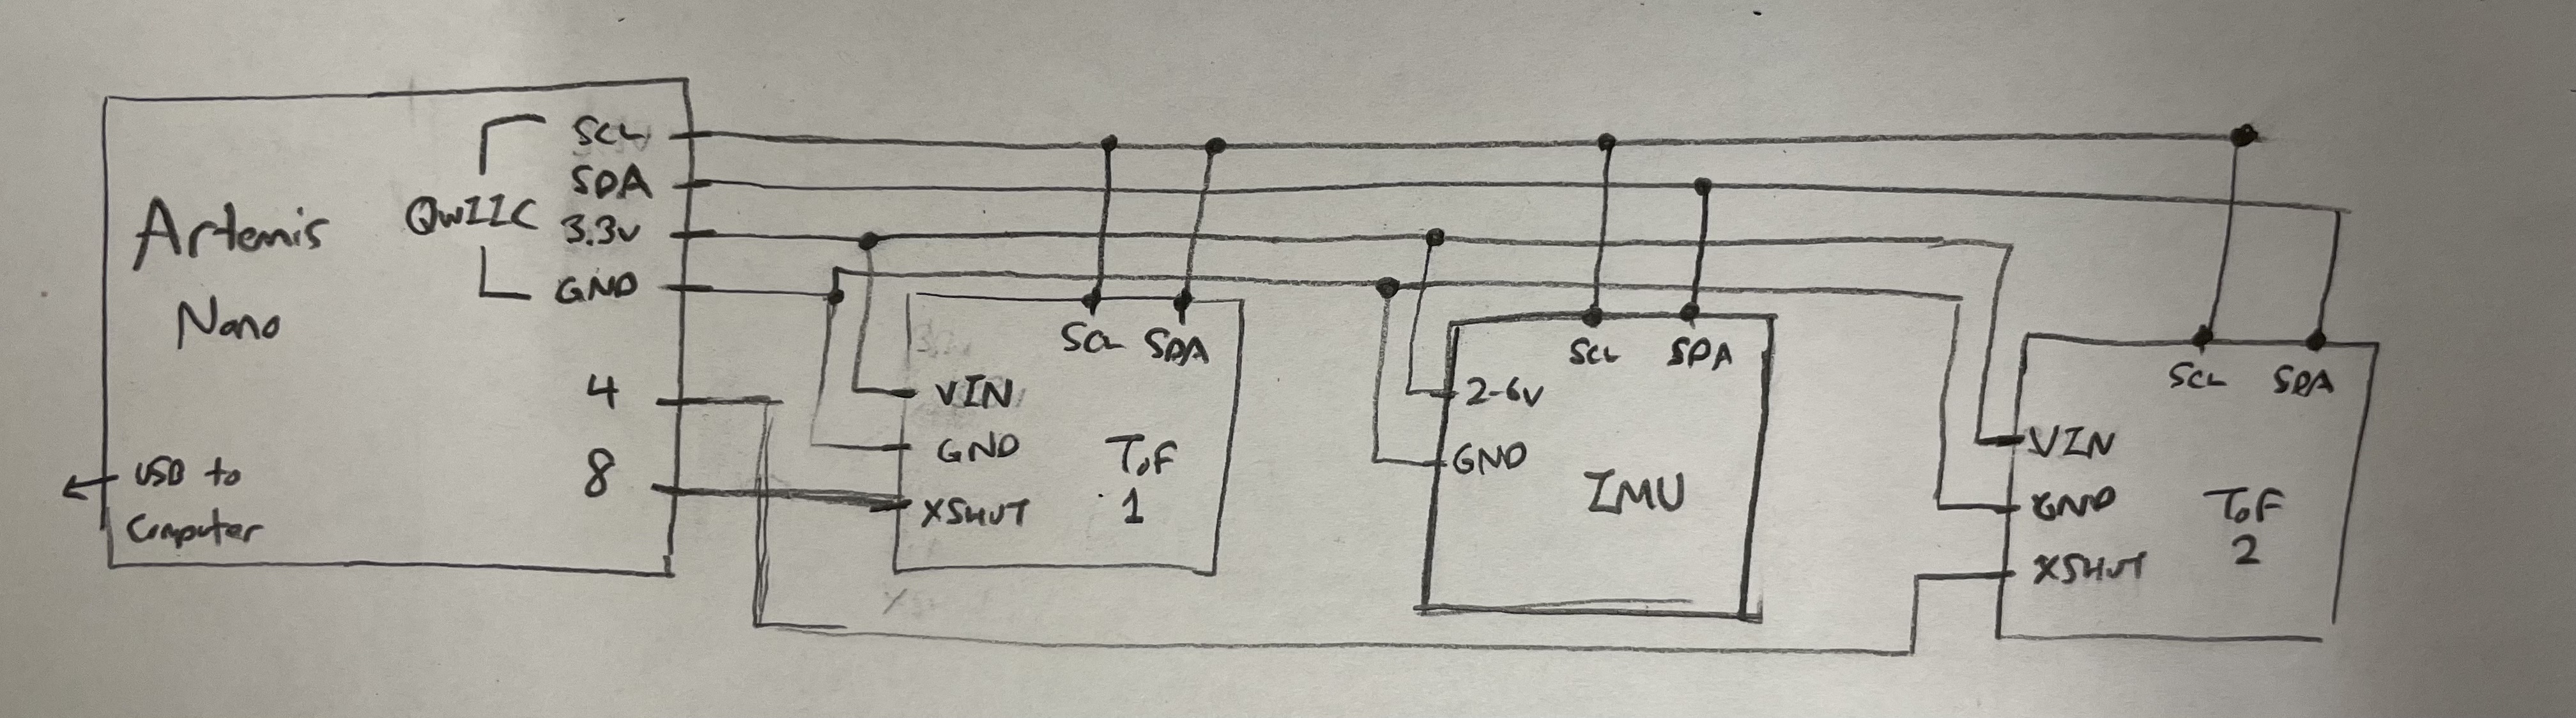 Artemis
Nano
QWIIC
SCL
SDA
3.3v
GND
4
8
USB to
Computer
SCL SDA
VIN
GND
XSHUT
ToF
1
SCL SDA
2-6v
GND
IMU
SCL SDA
VIN
GND
XSHUT
ToF
2